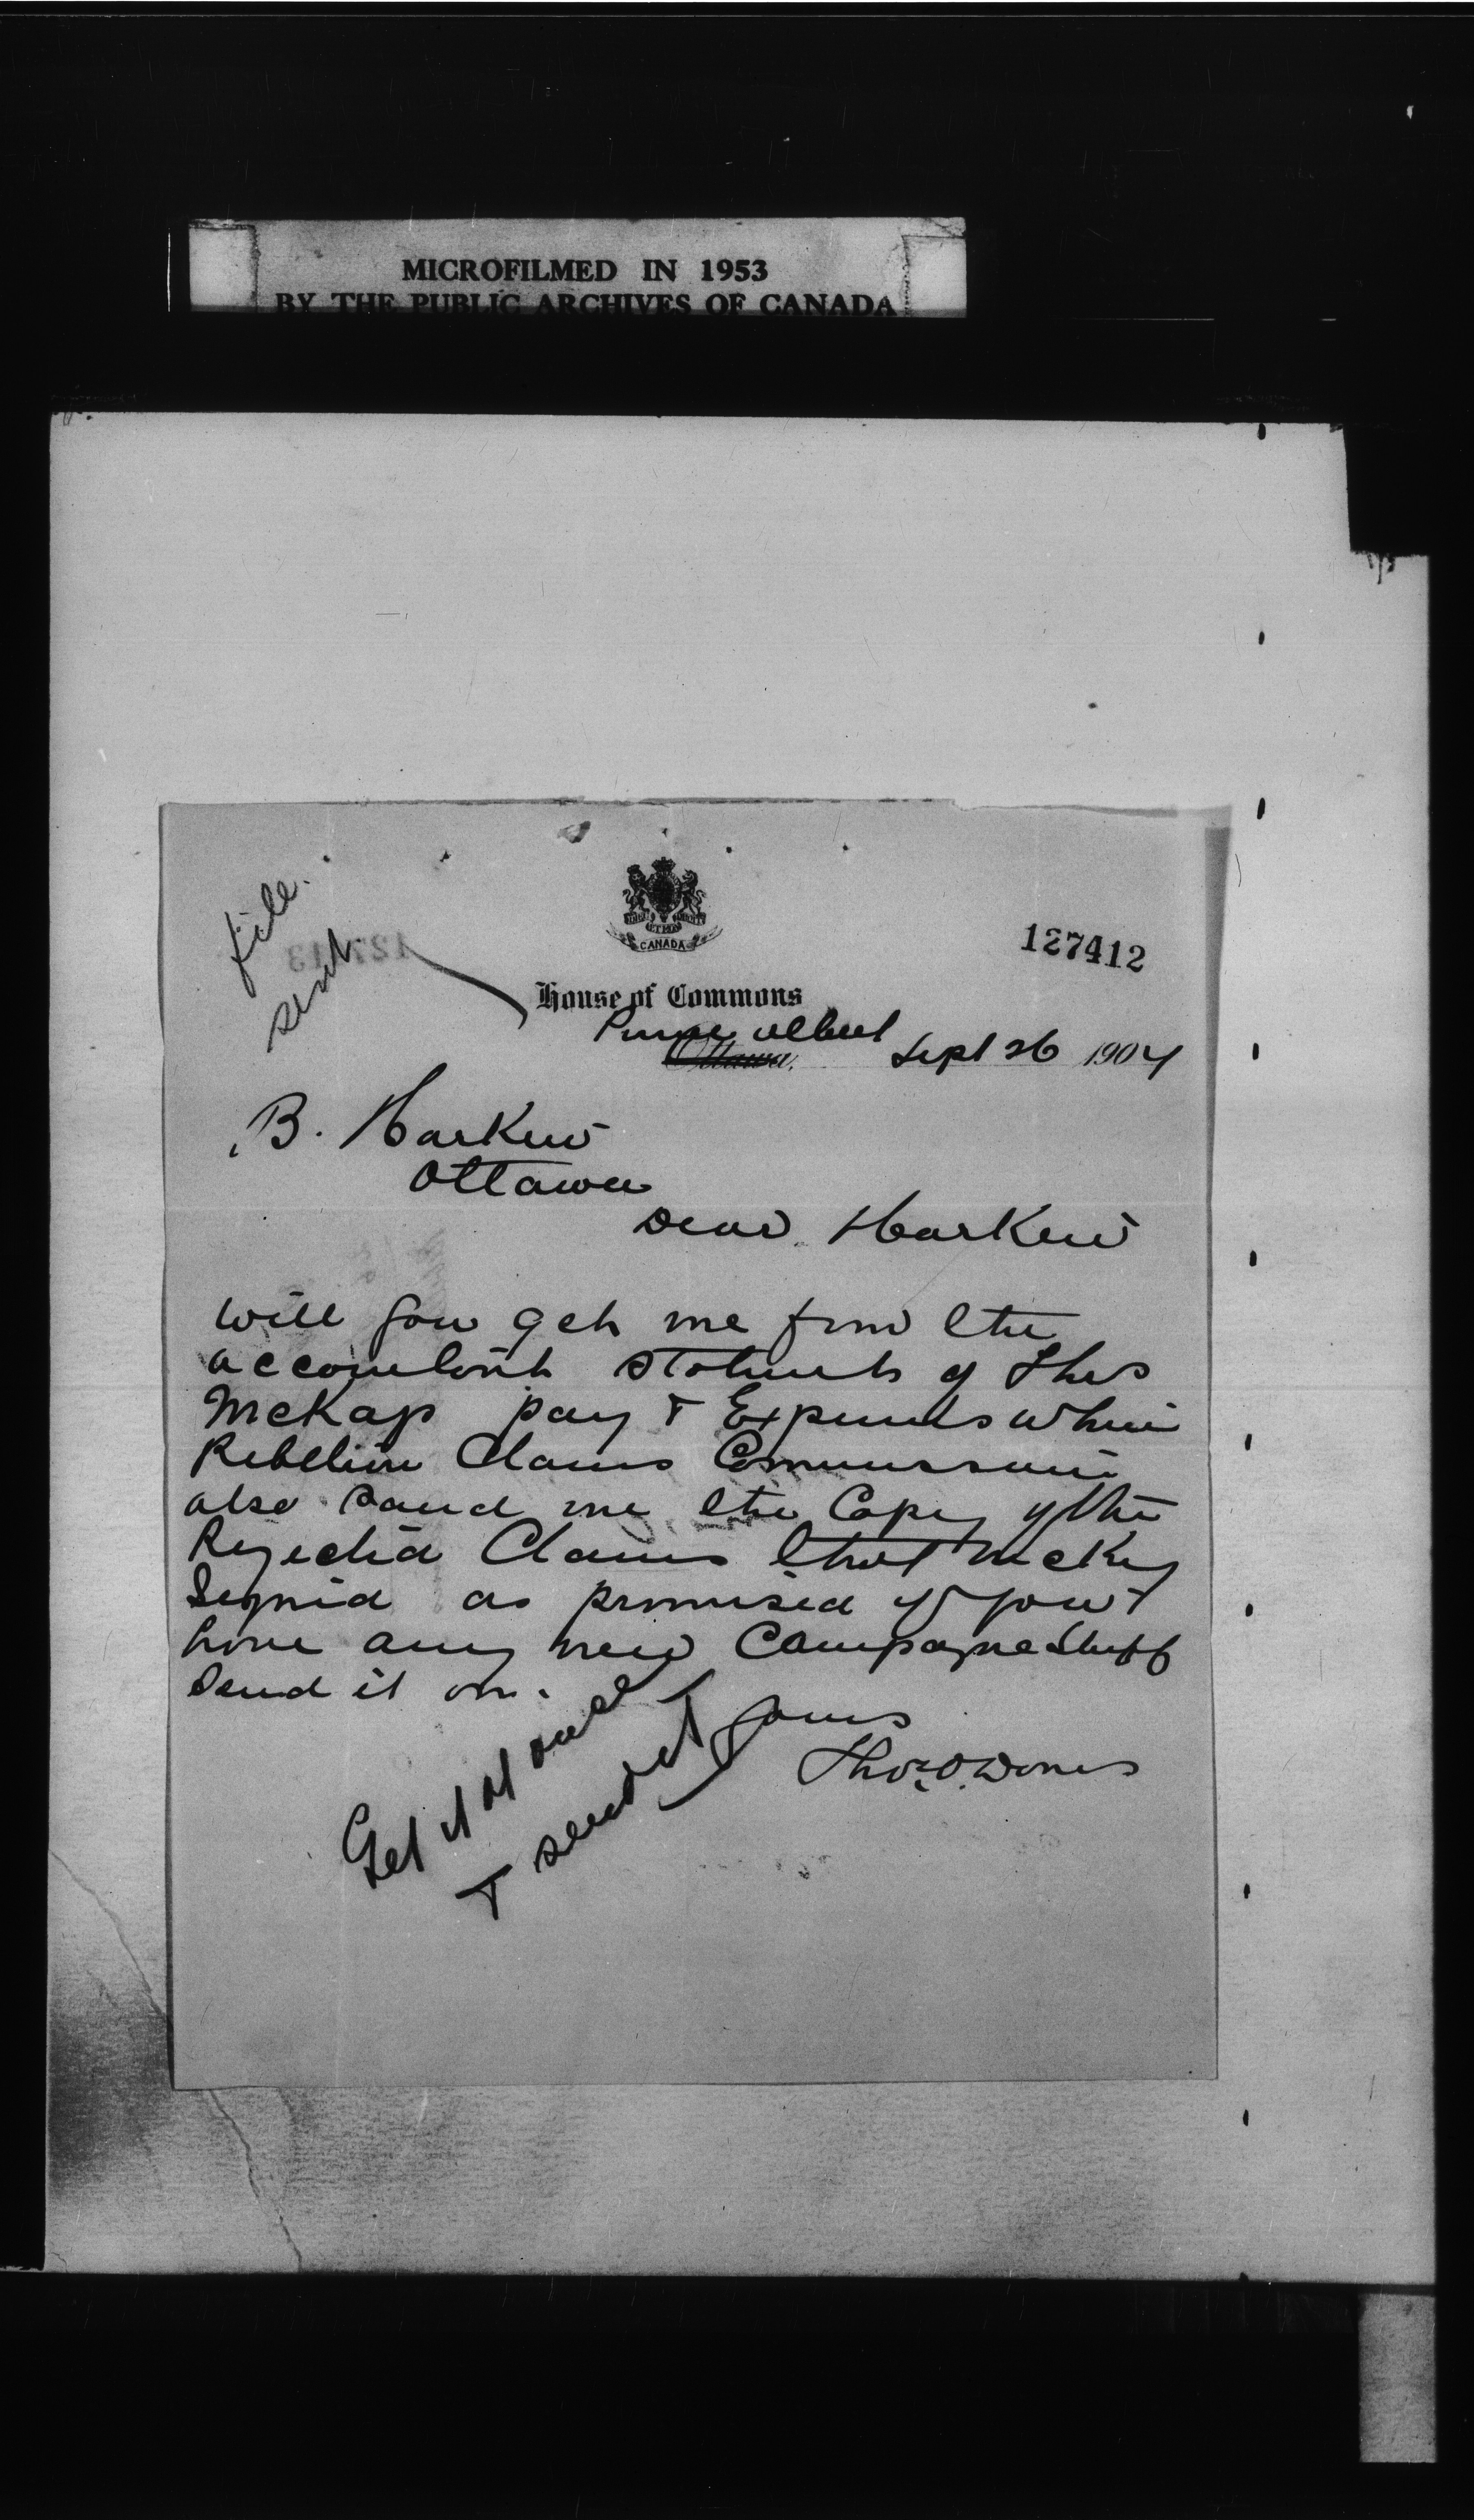 MICROFILMED IN 1953
BY THE PUBLIC ARCHIVES OF CANADA
file.
sent
CANADA
127412
House of Commons
Prince Albert
Ottawa, Sept 26 1904
B. Harkin
Ottawa
Dear Harkin
Will you get me from the
accountant statments of Thos
McKay pay & Expends when
Rebelion Claims Commission
also Saud me the Copy of the
Rejected Claims that McKy
Signid as promised if you
have any new Campagne Stuff
Send it on.
Yours
Thos. O. Davis
Get it at once
& send it